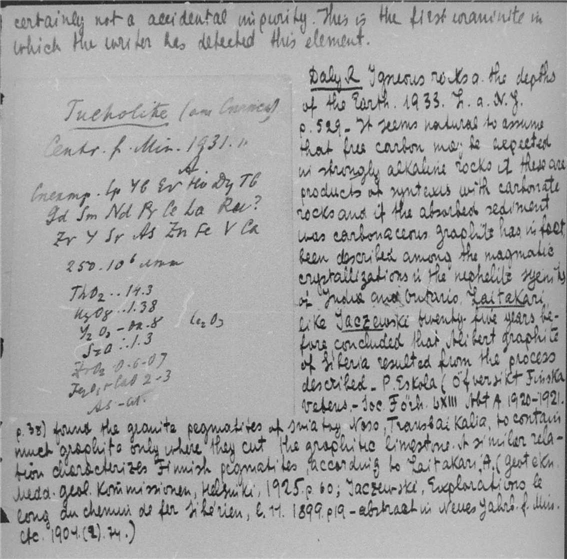 certainly not a accidental impurity. This is the first uraninite in
which the writer has detected this element.
Tucholite
Centr. f. Min. 1931.
Yb Er Ho Dy Tb
Gd Sm Nd Pr Ce La
Zr Y Sr As Zn Fe V Ca
250.10⁶
ThO₂..14.3
U₃O₈..1.38
Ce₂O₃
Daly R. Igneous rocks a. the depths
of the Earth. 1933. L. a. N.Y.
p. 529 – It seems natural to assume
that free carbon may be expected
in strongly alkaline rocks if these are
products of syntexis with carbonate
rocks and if the absorbed sediment
was carbonaceous. Graphite has in fact
been described among the magmatic
crystallizations in the nephelite syenites
of India and Ontario. Laitakari,
like Jaczewski twenty five years be-
fore concluded that Alibert graphite
of Siberia resulted from the process
described – P. Eskola (Öfversikt Finska
Vetens.-Soc. Förh. LXIII Abt A 1920-1921.
p. 38) found the granite pegmatites of Sviatoy Noss, Transbaikalia, to contain
much graphite only where they cut the graphitic limestone. A similar rela-
tion characterizes Finnish pegmatites according to Laitakari, A, (Geotekn.
Medd. geol. Kommissionen, Helsinki, 1925. p. 60; Jaczewski, Explorations le
long du chemin de fer Sibérien, 1899. p 19 – abstract in Neues Jahrb. f. Min.
etc. 1901. (2). 74.)